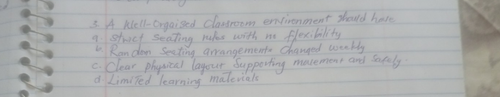 3. A Well-Orgaised Classroom environment should have
a. Strict seating rules with no flexibility
b. Random Seating arrangements Changed weekly
c. Clear physical layout Supporting movement and Safety.
d Limited learning materials